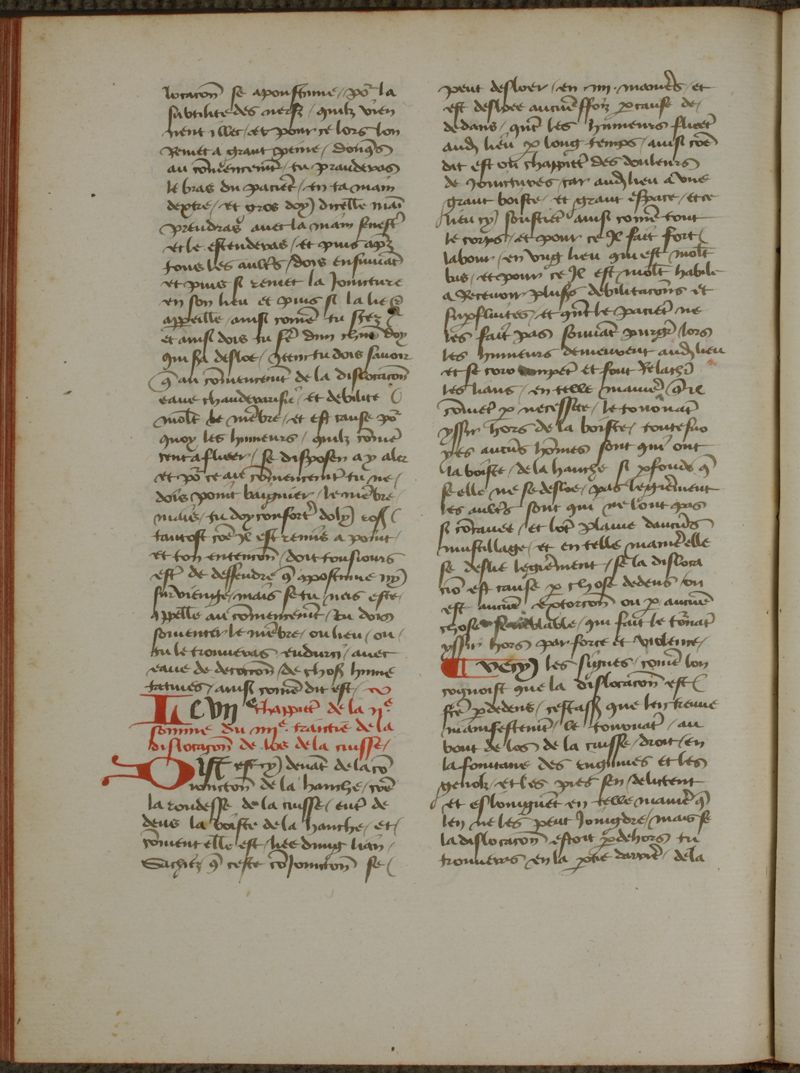 locacon se apoustume / po la
subtilite des nerfz / quilz vien
nent illec / et pour ce lors lon
remet a grant peine / doncqs
au comencemt / tu prenderas
le bras du paciet / en ta main
dextre / et gros doy dicelle mai
prendras avec la main senest
et le estenderas / et puis apz
tous les aults / dois ensuivat
et puis si remet la Joincture
en son lieu et puis si la lie
appeille / ainsi come tu scez
et ainsi dois tu fe dun chun doy
qui sa desloe / Item tu dois savoir
q au comencement de la dislocacon
eaue chaude et debilite
molt le mebre / et est cause po
quoy les humeurs / quilz come
cent a fluer / se disposen a y aler
et po ce au comencemt tu ne
dois point baignier / le mebre
mais / tu doy confort doly ros
tantost coe Il est remis a point
et ton entencon / doit tousiours
est de deffendre q apostume ny
surviengne / mais se tu neis este
appelle au comencemt / tu dois
fomenter le mebre / ou lieu / ou
tu le trouveras endurci / avec
eaue de decocon / de chos hume
tatives / ainsi come dit est /
Le VIIe chappit de la IIe
somme du IIIe traictie de la
dislocacon de los de la cuisse /
Dist est cy devat de la co
ioincton de la hanche / coe
la rondesse de la cuisse / entr de
dens la boiste de la hanche / et
coment elle est / liee dung lian /
Sachez q ceste co Joincton se
peut desloer / en IIII manies / et
est desloee aucune ffoiz p cause de
dedans / qnt les humeurs fluet
aud lieu p long temps / ainsi coe
dit est ou chappit des douleurs
de Joinctures / car aud lieu a une
grant boiste / et grant espace / et ce
lieu cy soustiet ainsi come tout
le corps / et pour ce Il fait fort
labour / en ung lieu qui est molt
bas / et pour ce Il est molt habile
a Recevoir plus debilitacons et
supfluites / et qnt le paciet ne
les fait pas souvat purgr / lors
les humeurs demeurent aud lieu
et se corompet et font Relache
les lians / en telle manie q Il
coviet p necessite / le tonoat
yssir hors de la boiste / toutefvo
yes aucus homes sont qui ont
la boiste / de la hanche si pfonde q
se elle ne se desloe / pas legierement
les aults sont qui ne lont pas
si concavee / et lot plaine daucus
mustillage / et en telle manie elle
se desloe legierement / se la disloca
cio est cause p chose dedens / ou
est aucue extorcon ou p aucue
chose semblable / qui fait le tonat
yssir hors par force et violence /
¶ Vecy les signes / come lon
cognoist que la dislocacon est
fte p dedens / cestass que len treuve
manifestemt / le tonoat / au
bout de los de la cuisse / droit en
la fontaine des enguines et les
genolz / et les pies sen delictent
et esloingnet en telle manie q
len ne les peut Joingdre / mais se
la dislocacon estoit p dehors tu
trouveras en la ptie darrier / de la